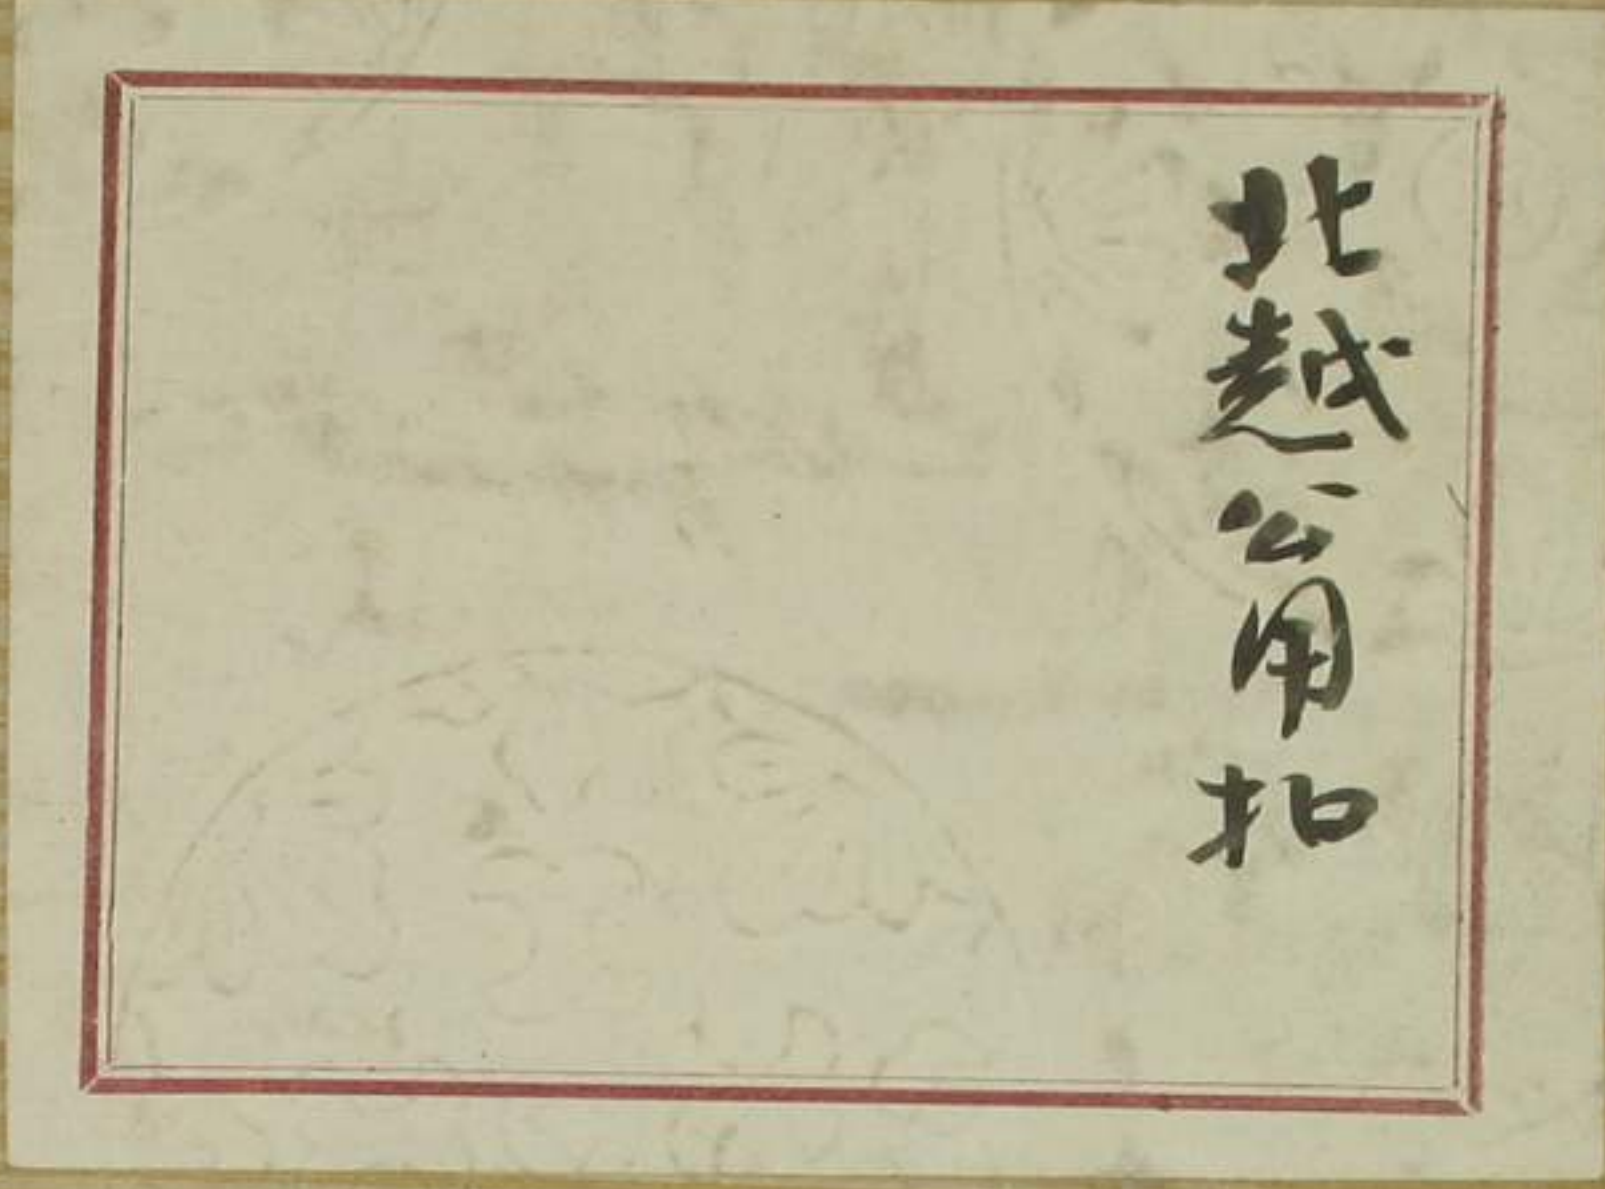 北越公用扣